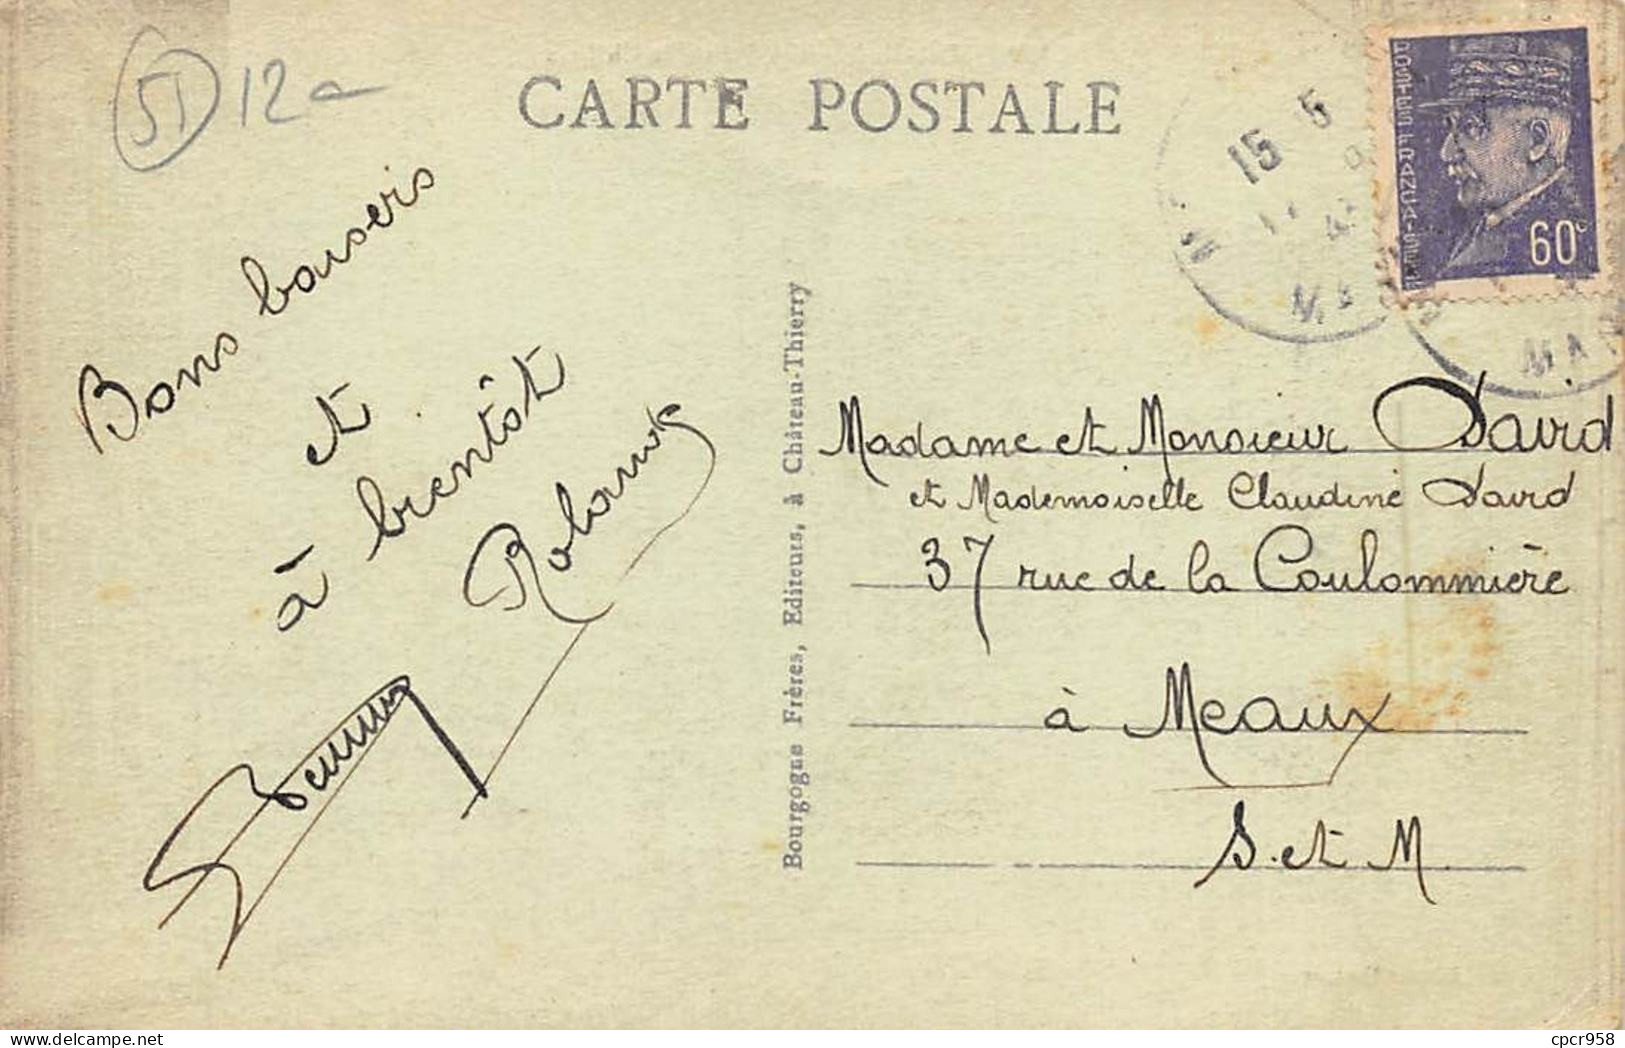 51 12a
CARTE POSTALE
15 5
POSTES FRANÇAISES
60c
MAR
Bons baisers
et
à bientôt
Bourgogne Frères, Editeurs, à Château-Thierry
Madame et Monsieur David
et Mademoiselle Claudine David
37 rue de la Coulommière
à Meaux
S. et M.
cpcr958